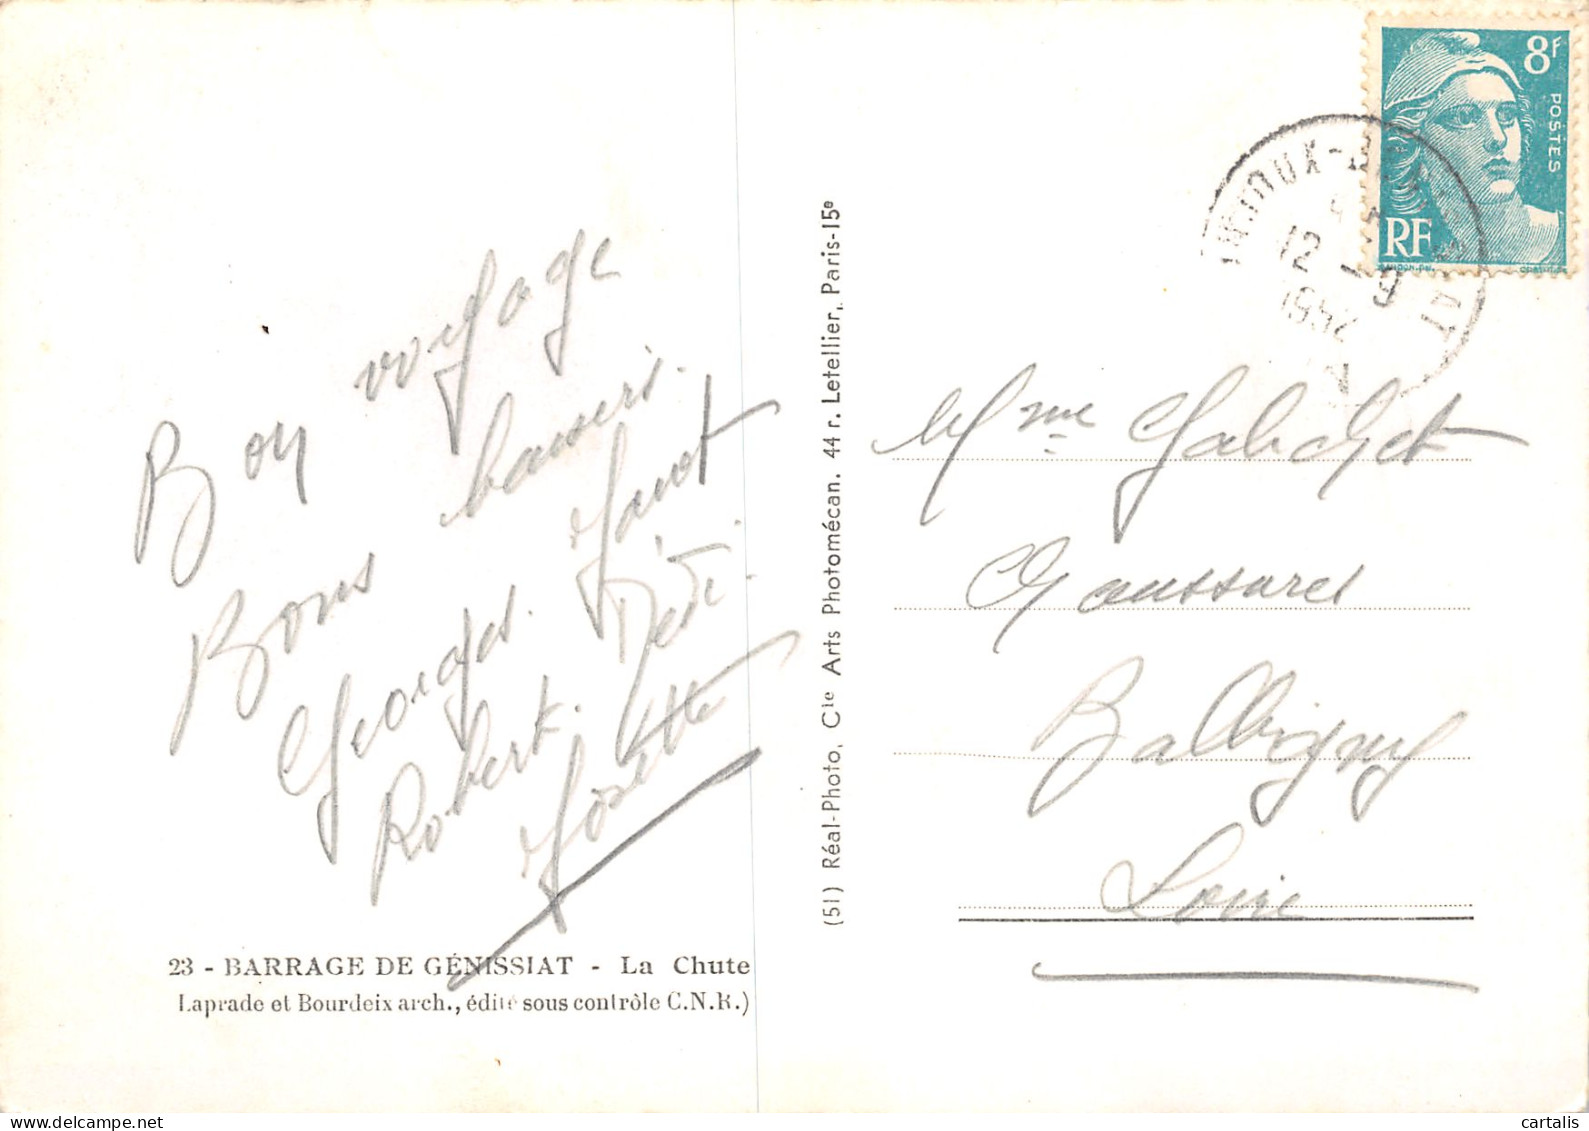 Bon voyage
Bons baisers.
Georges. Janot
Robert. Dédé.
Josette
23 - BARRAGE DE GÉNISSIAT - La Chute
Laprade et Bourdeix arch., édité sous contrôle C.N.R.)
(51) Réal-Photo, Cie Arts Photomécan. 44 r. Letellier, Paris-15e
8F
POSTES
RF
12 - 9
1952
Mme
Chaussures
Balbigny
Loire
cartalis